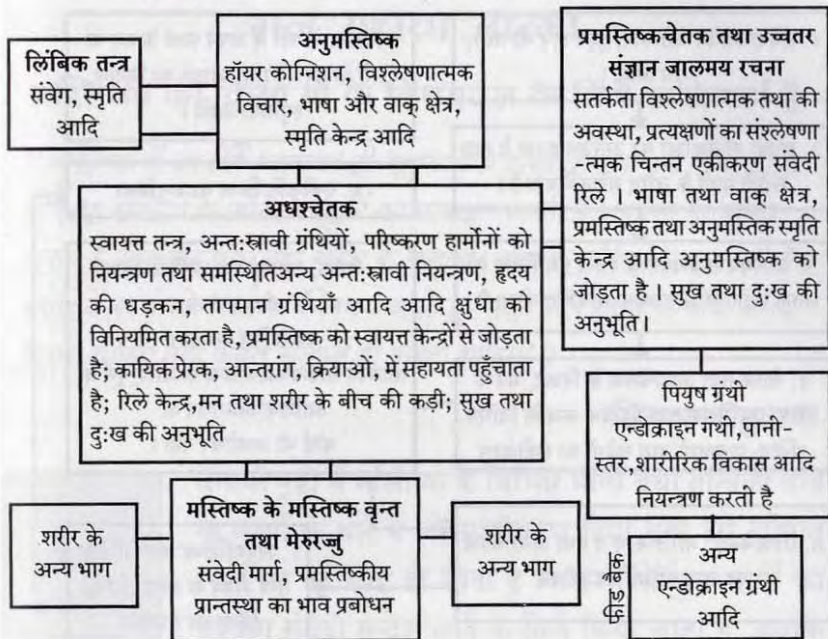 लिंबिक तन्त्र
संवेग, स्मृति
आदि
अनुमस्तिष्क
हॉयर कोग्निशन, विश्लेषणात्मक
विचार, भाषा और वाक् क्षेत्र,
स्मृति केन्द्र आदि
प्रमस्तिष्कचेतक तथा उच्चतर
संज्ञान जालमय रचना
सतर्कता विश्लेषणात्मक तथा की
अवस्था, प्रत्यक्षणों का सश्लेषणा
-त्मक चिन्तन एकीकरण संवेदी
रिले । भाषा तथा वाक् क्षेत्र,
प्रमस्तिष्क तथा अनुमस्तिक स्मृति
केन्द्र आदि अनुमस्तिष्क को
जोड़ता है । सुख तथा दुःख की
अनुभूति ।
अधश्चेतक
स्वायत्त तन्त्र, अन्त:स्रावी ग्रंथियों, परिष्करण हार्मोनों को
नियन्त्रण तथा समस्थितिअन्य अन्त:स्रावी नियन्त्रण, हृदय
की धड़कन, तापमान ग्रंथियाँ आदि आदि क्षुधा को
विनियमित करता है, प्रमस्तिष्क को स्वायत्त केन्द्रों से जोड़ता
है; कायिक प्रेरक, आन्तरांग, क्रियाओं, में सहायता पहुँचाता
है; रिले केन्द्र,मन तथा शरीर के बीच की कड़ी; सुख तथा
दुःख की अनुभूति
पियुष ग्रंथी
एन्डोक्राइन गंथी,पानी-
स्तर,शारीरिक विकास आदि
नियन्त्रण करती है
शरीर के
अन्य भाग
मस्तिष्क के मस्तिष्क वृन्त
तथा मेरुरज्जु
संवेदी मार्ग, प्रमस्तिष्कीय
प्रान्तस्था का भाव प्रबोधन
शरीर के
अन्य भाग
फीड बैक
अन्य
एन्डोक्राइन ग्रंथी
आदि